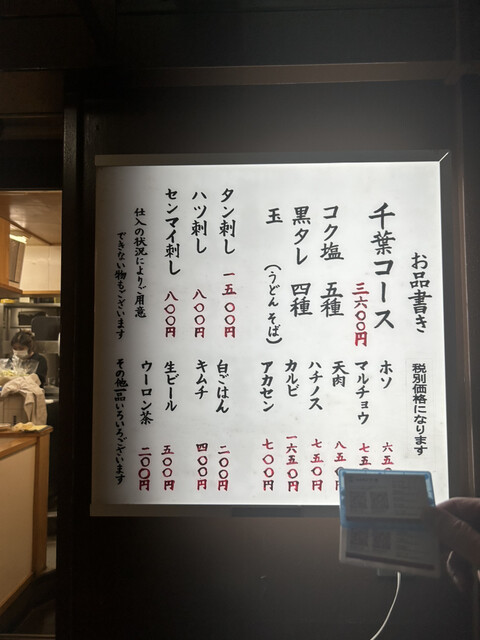 お品書き
税別価格になります
千葉コース
三六〇〇円
コク塩 五種
黒タレ 四種
玉(うどん そば)
タン刺し 一五〇〇円
ハツ刺し 八〇〇円
センマイ刺し 八〇〇円
仕入の状況によりご用意
できない物もございます
ホソ 六五
マルチョウ 七五
天肉 八五
ハチノス 七五〇円
カルビ 一六五〇円
アカセン 七〇〇円
白ごはん 二〇〇円
キムチ 四〇〇円
生ビール 五〇〇円
ウーロン茶 二〇〇円
その他一品いろいろございます